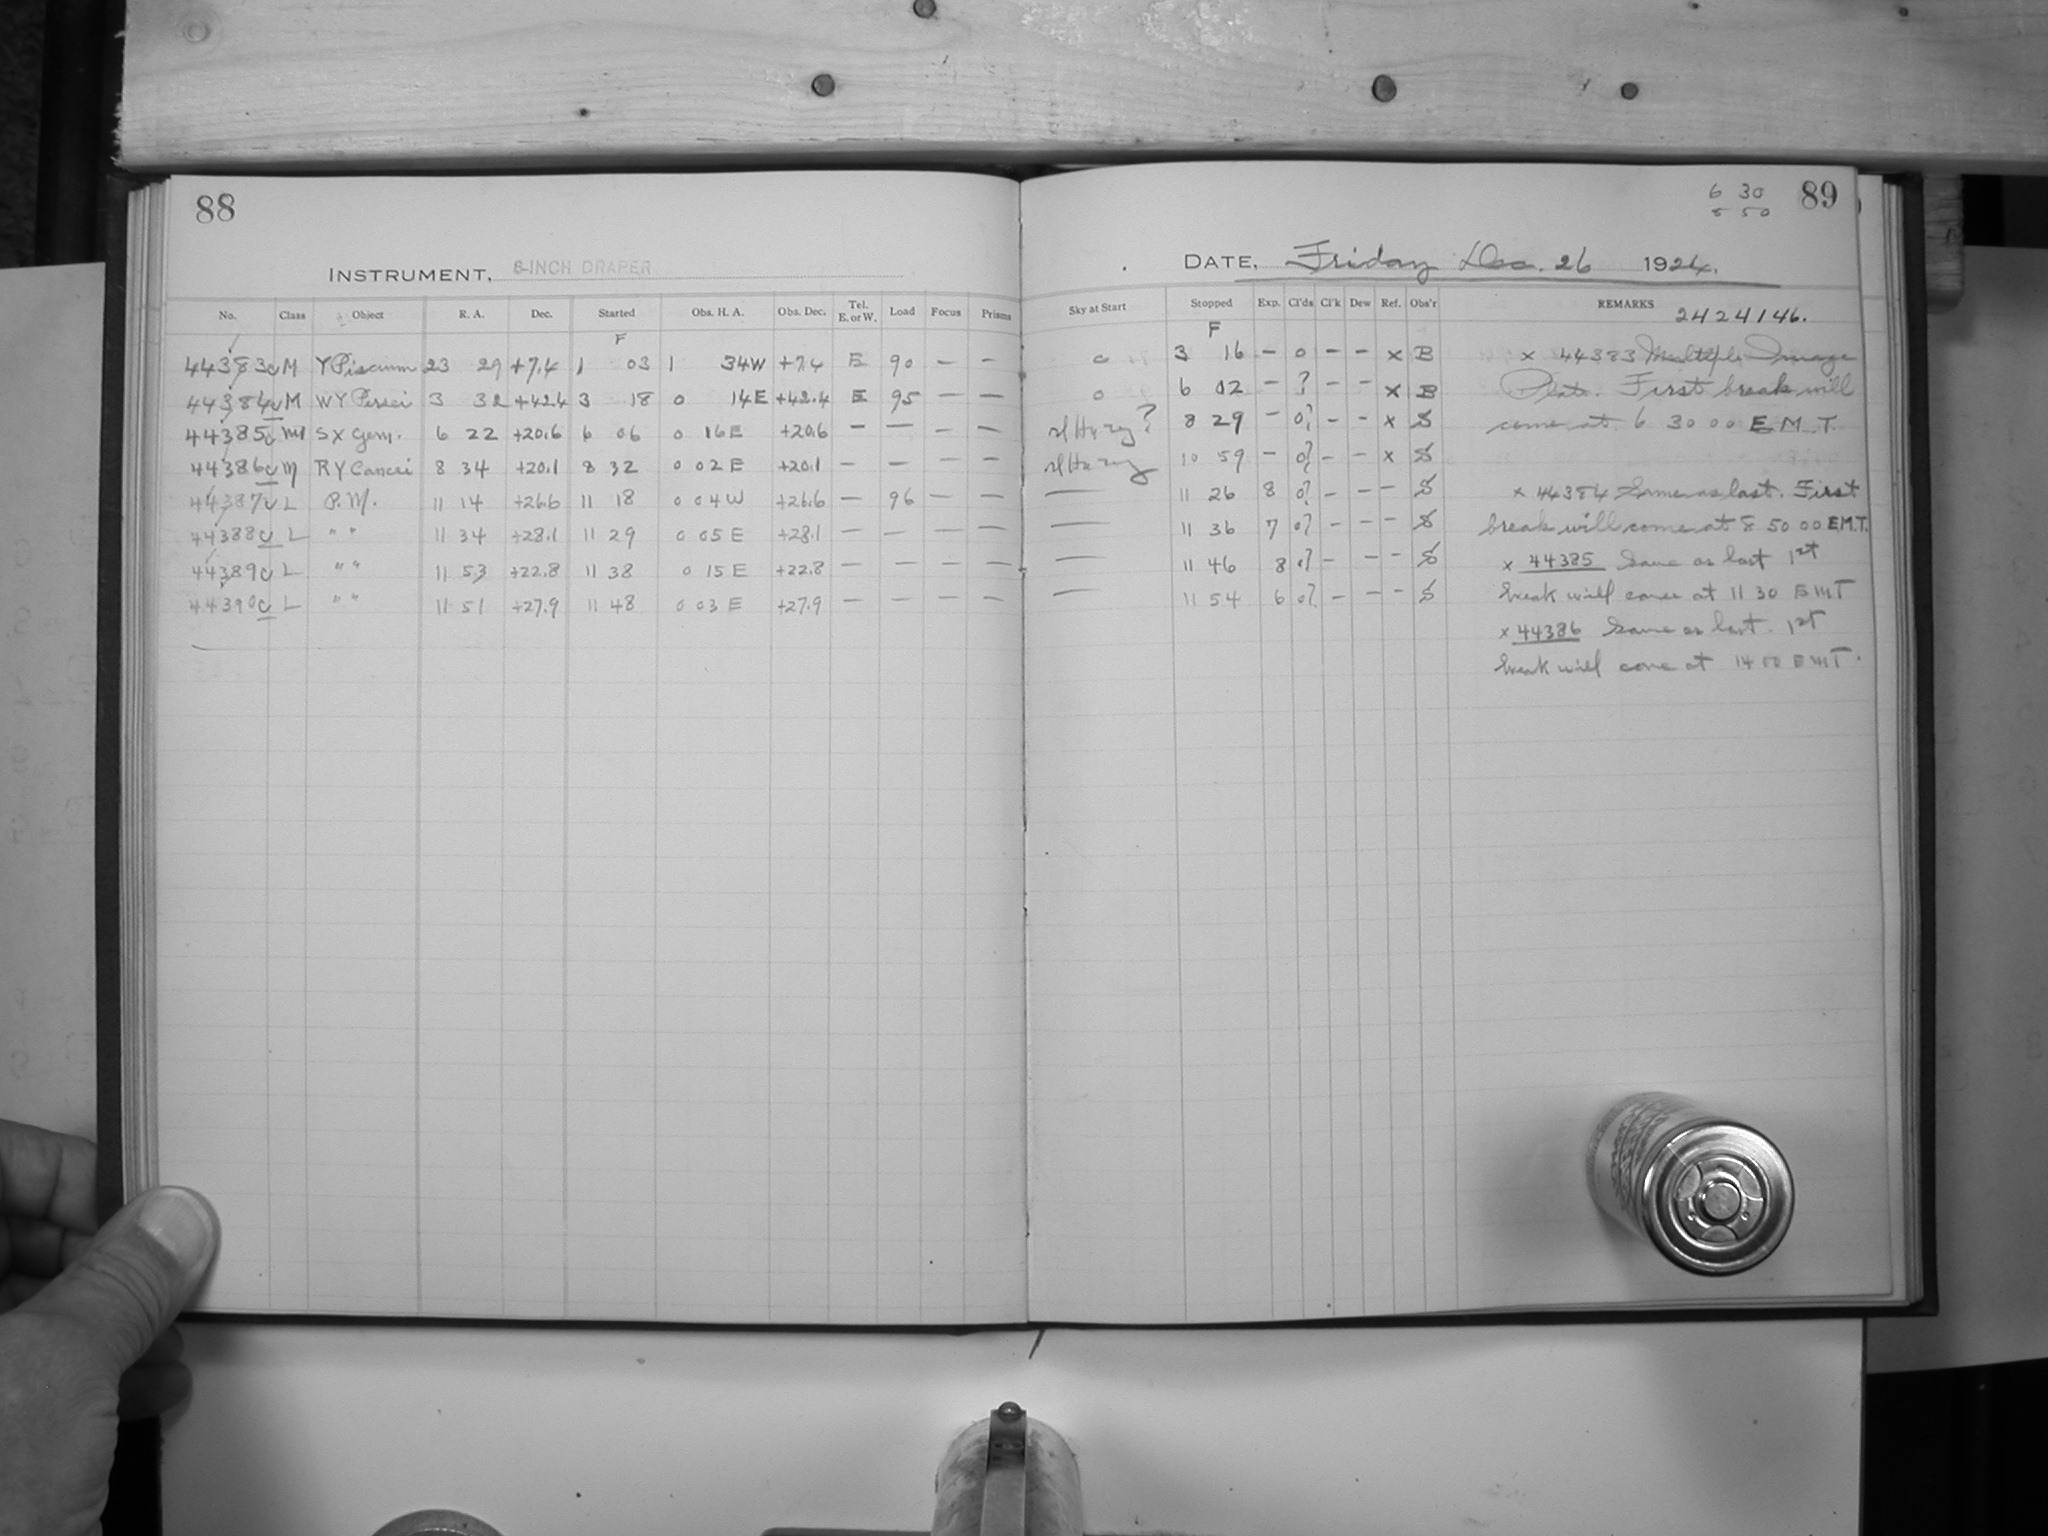 88
INSTRUMENT, 8-INCH DRAPER
No. Class Object R. A. Dec. Started Obs. H. A. Obs. Dec. Tel. E. or W. Load Focus Prisms
F
44383c M Y Piscium 23 29 +7.4 1 03 1 34W +7.4 E 90 — —
44384c M WY Persei 3 32 +42.4 3 18 0 14E +42.4 E 95 — —
44385c M SX Gem. 6 22 +20.6 6 06 0 16E +20.6 — — — —
44386c M RY Cancri 8 34 +20.1 8 32 0 02E +20.1 — — — —
44387c L P.M. 11 14 +26.6 11 18 0 04W +26.6 — 96 — —
44388c L " " 11 34 +28.1 11 29 0 05E +28.1 — — — —
44389c L " " 11 53 +22.8 11 38 0 15E +22.8 — — — —
44390c L " " 11 51 +27.9 11 48 0 03E +27.9 — — — —
6 30 89
8 50
DATE, Friday Dec. 26 1924.
Sky at Start Stopped Exp. Cl'ds Cl'k Dew Ref. Obs'r REMARKS
2424146.
F
0 3 16 — 0 — — x B
0 6 02 — ? — — x B
sl Hazy? 8 29 — 0? — — x S
sl Hazy 10 59 — 0? — — x S
— 11 26 8 0? — — — S
— 11 36 7 0? — — — S
— 11 46 8 0? — — — S
— 11 54 6 0? — — — S
x 44383 Multiple Image
Plate. First break will
come at 6 30 00 E.M.T.
x 44384 Same as last. First
break will come at 8 50 00 E.M.T.
x 44385 Same as last 1st
break will come at 11 30 EMT
x 44386 Same as last. 1st
break will come at 14 00 EMT.